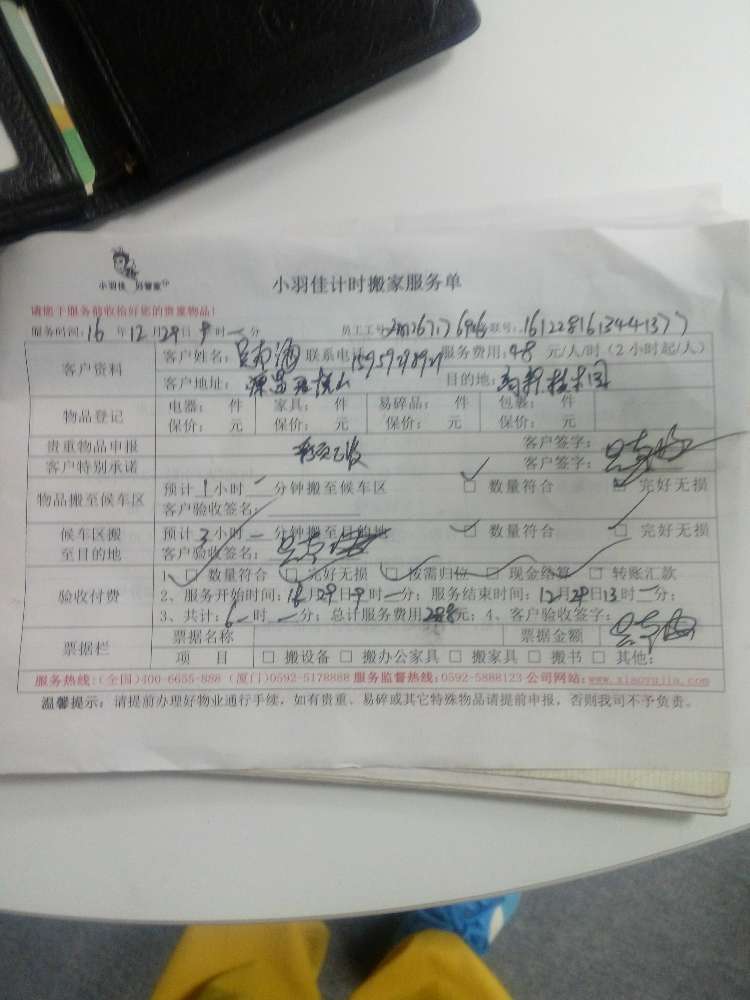 小羽佳 好管家
小羽佳计时搬家服务单
请您于服务前收拾好您的贵重物品!
服务时间:16 年 12 月 29 日 9 时 一 分 员工工号: 联号:1612281613441377
客户资料
客户姓名: 联系电话 服务费用:48 元/人/时(2小时起/人)
客户地址: 目的地:
物品登记
电器: 件 家具: 件 易碎品: 件 包裹: 件
保价: 元 保价: 元 保价: 元 保价: 元
贵重物品申报 客户签字:
客户特别承诺 客户签字:
物品搬至候车区
预计 1 小时 一 分钟搬至候车区 □ 数量符合 □ 完好无损
客户验收签名:
候车区搬至目的地
预计 3 小时 一 分钟搬至目的地 □ 数量符合 □ 完好无损
客户验收签名:
验收付费
1、□ 数量符合 □ 完好无损 □ 按需归位 □ 现金结算 □ 转账汇款
2、服务开始时间: 月29日9时一分; 服务结束时间:12月29日13时一分;
3、共计:6一时 一分; 总计服务费用288元; 4、客户验收签字:
票据栏
票据名称 票据金额
项 目 □ 搬设备 □ 搬办公家具 □ 搬家具 □ 搬书 □ 其他:
服务热线:(全国)400-6655-888 (厦门)0592-5178888 服务监督热线:0592-5888123 公司网站:www.xiaoyujia.com
温馨提示:请提前办理好物业通行手续,如有贵重、易碎或其它特殊物品请提前申报,否则我司不予负责。